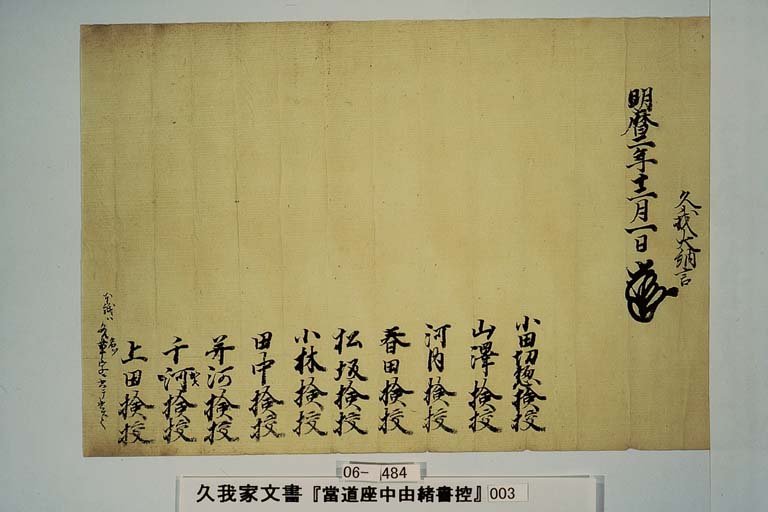 久我大納言
明暦二年十二月一日
小田切惣検校
山澤検校
河内検校
春田検校
松坂検校
小林検校
田中検校
井河検校
千河検校
上田検校
06-484
久我家文書『當道座中由緒書控』 003